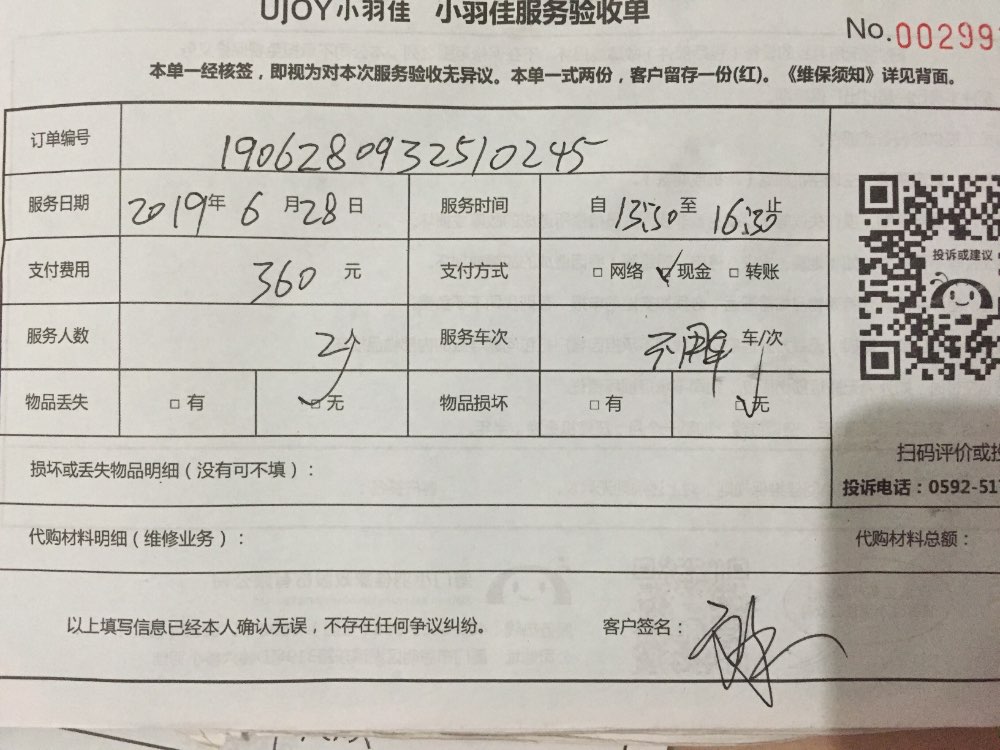 UJOY小羽佳 小羽佳服务验收单
No.00299
本单一经核签，即视为对本次服务验收无异议。本单一式两份，客户留存一份(红)。《维保须知》详见背面。
订单编号 190628093251 0245
服务日期 2019年 6 月 28 日 服务时间 自 13:50 至 16:30 止
支付费用 360 元 支付方式 □ 网络 ☑ 现金 □ 转账
服务人数 2个 服务车次 不用车 车/次
物品丢失 □ 有 ☑ 无 物品损坏 □ 有 ☑ 无
投诉或建议
扫码评价或投
损坏或丢失物品明细（没有可不填）：
投诉电话：0592-517
代购材料明细（维修业务）：
代购材料总额：
以上填写信息已经本人确认无误，不存在任何争议纠纷。 客户签名：